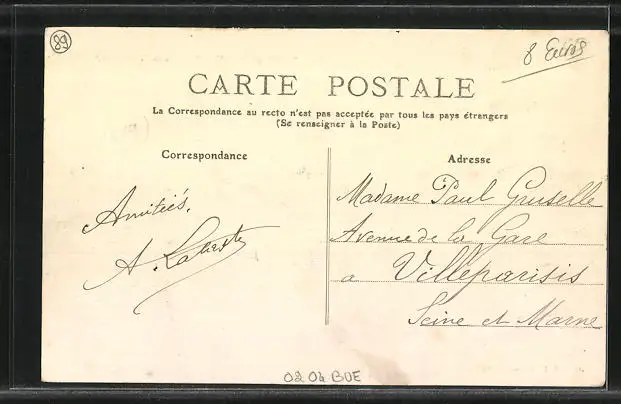 89
8 Euros
CARTE POSTALE
La Correspondance au recto n'est pas acceptée par tous les pays étrangers
(Se renseigner à la Poste)
Correspondance
Adresse
Amitiés,
A.
Madame Paul Gruselle
Avenue de la Gare
a Villeparisis
Seine et Marne
02 04 BOE